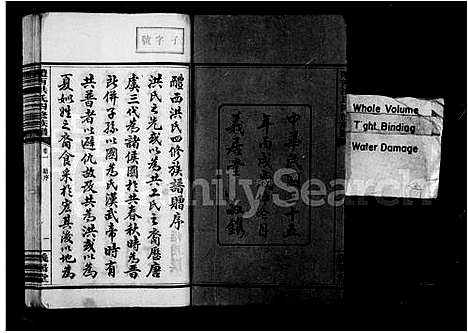 子字號
醴西洪氏四修族譜贈序
洪氏之先或以為共工氏之裔歷唐
虞三代為諸侯國於共春秋時為晉
所併子孫以國為氏漢武帝時有
共普者以避仇故改共為洪或以為
夏姒姓之裔食采於
其後以地為
中華民國
十五
年丙戌
月
義居堂
Whole Volume
Tight Binding
Water Damage
FamilySearch